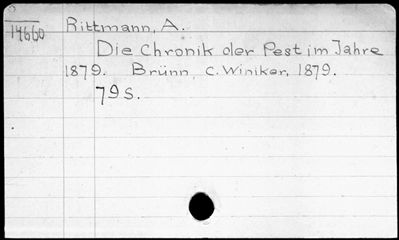 14660
Rittmann, A.
Die Chronik der Pest im Jahre
1879. Brünn, C. Winiker, 1879.
79 S.